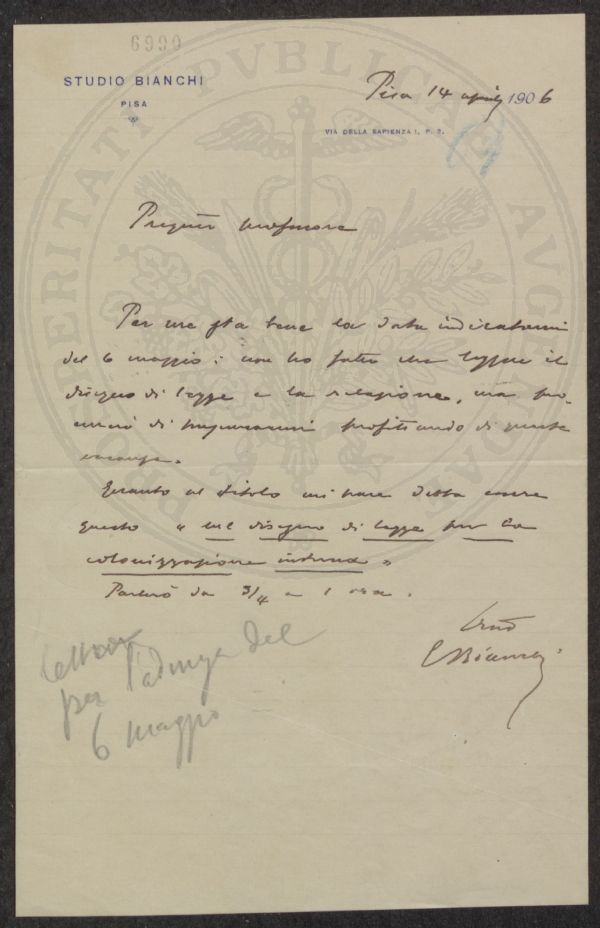 6990
STUDIO BIANCHI
PISA
Pisa 14 aprile 1906
VIA DELLA SAPIENZA 1, P. 2.
Pregmo professore
Per me sta bene la data indicatami
del 6 maggio: non ho fatto che leggere il
disegno di legge e la relazione, ma pro-
curerò di prepararmi profittando di queste
vacanze.
Quanto al titolo mi pare debba essere
questo « sul disegno di legge per la
colonizzazione interna »
Parlerò da 3/4 a 1 ora.
Bianchi
per l'adunza del
6 maggio